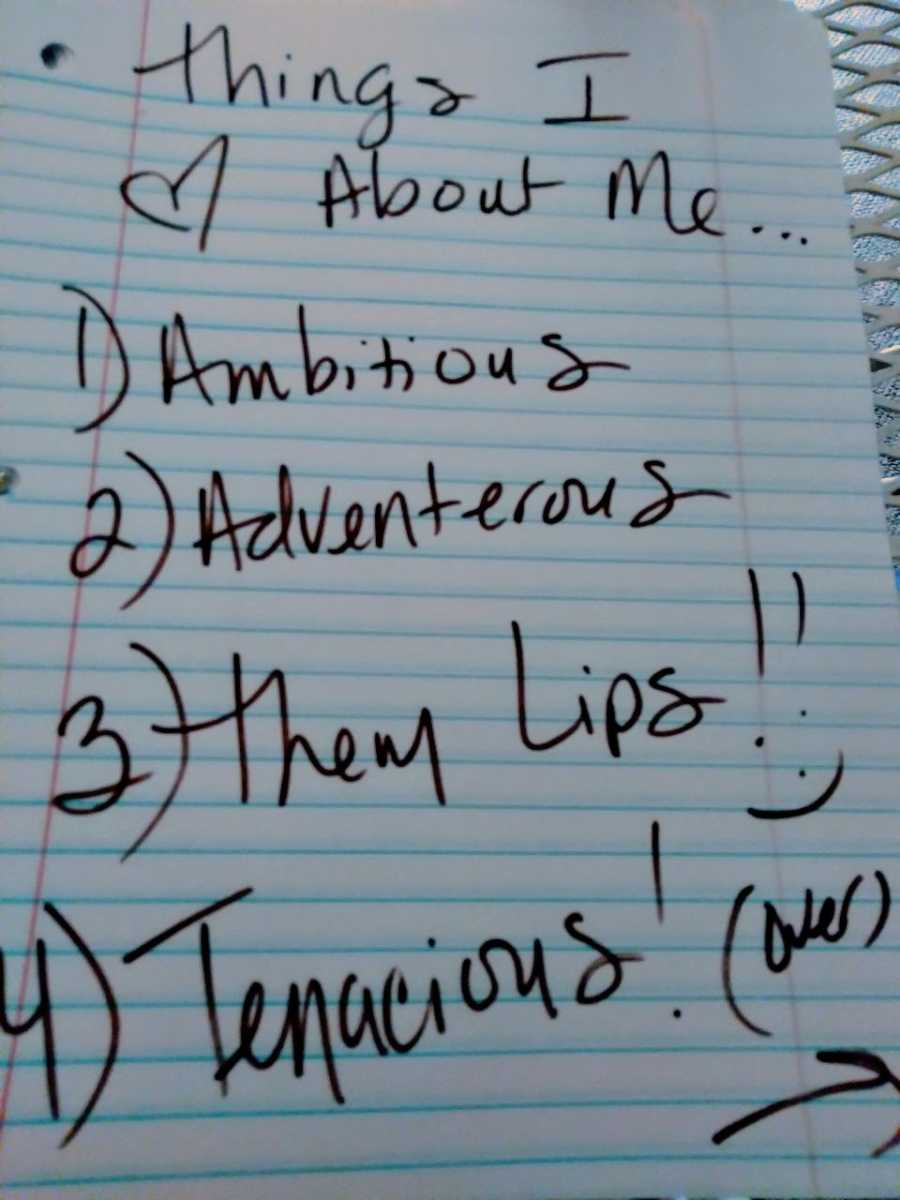 Things I
♡ About Me...
1) Ambitious
2) Adventerous
3) Them Lips!! :)
4) Tenacious! (over)
→